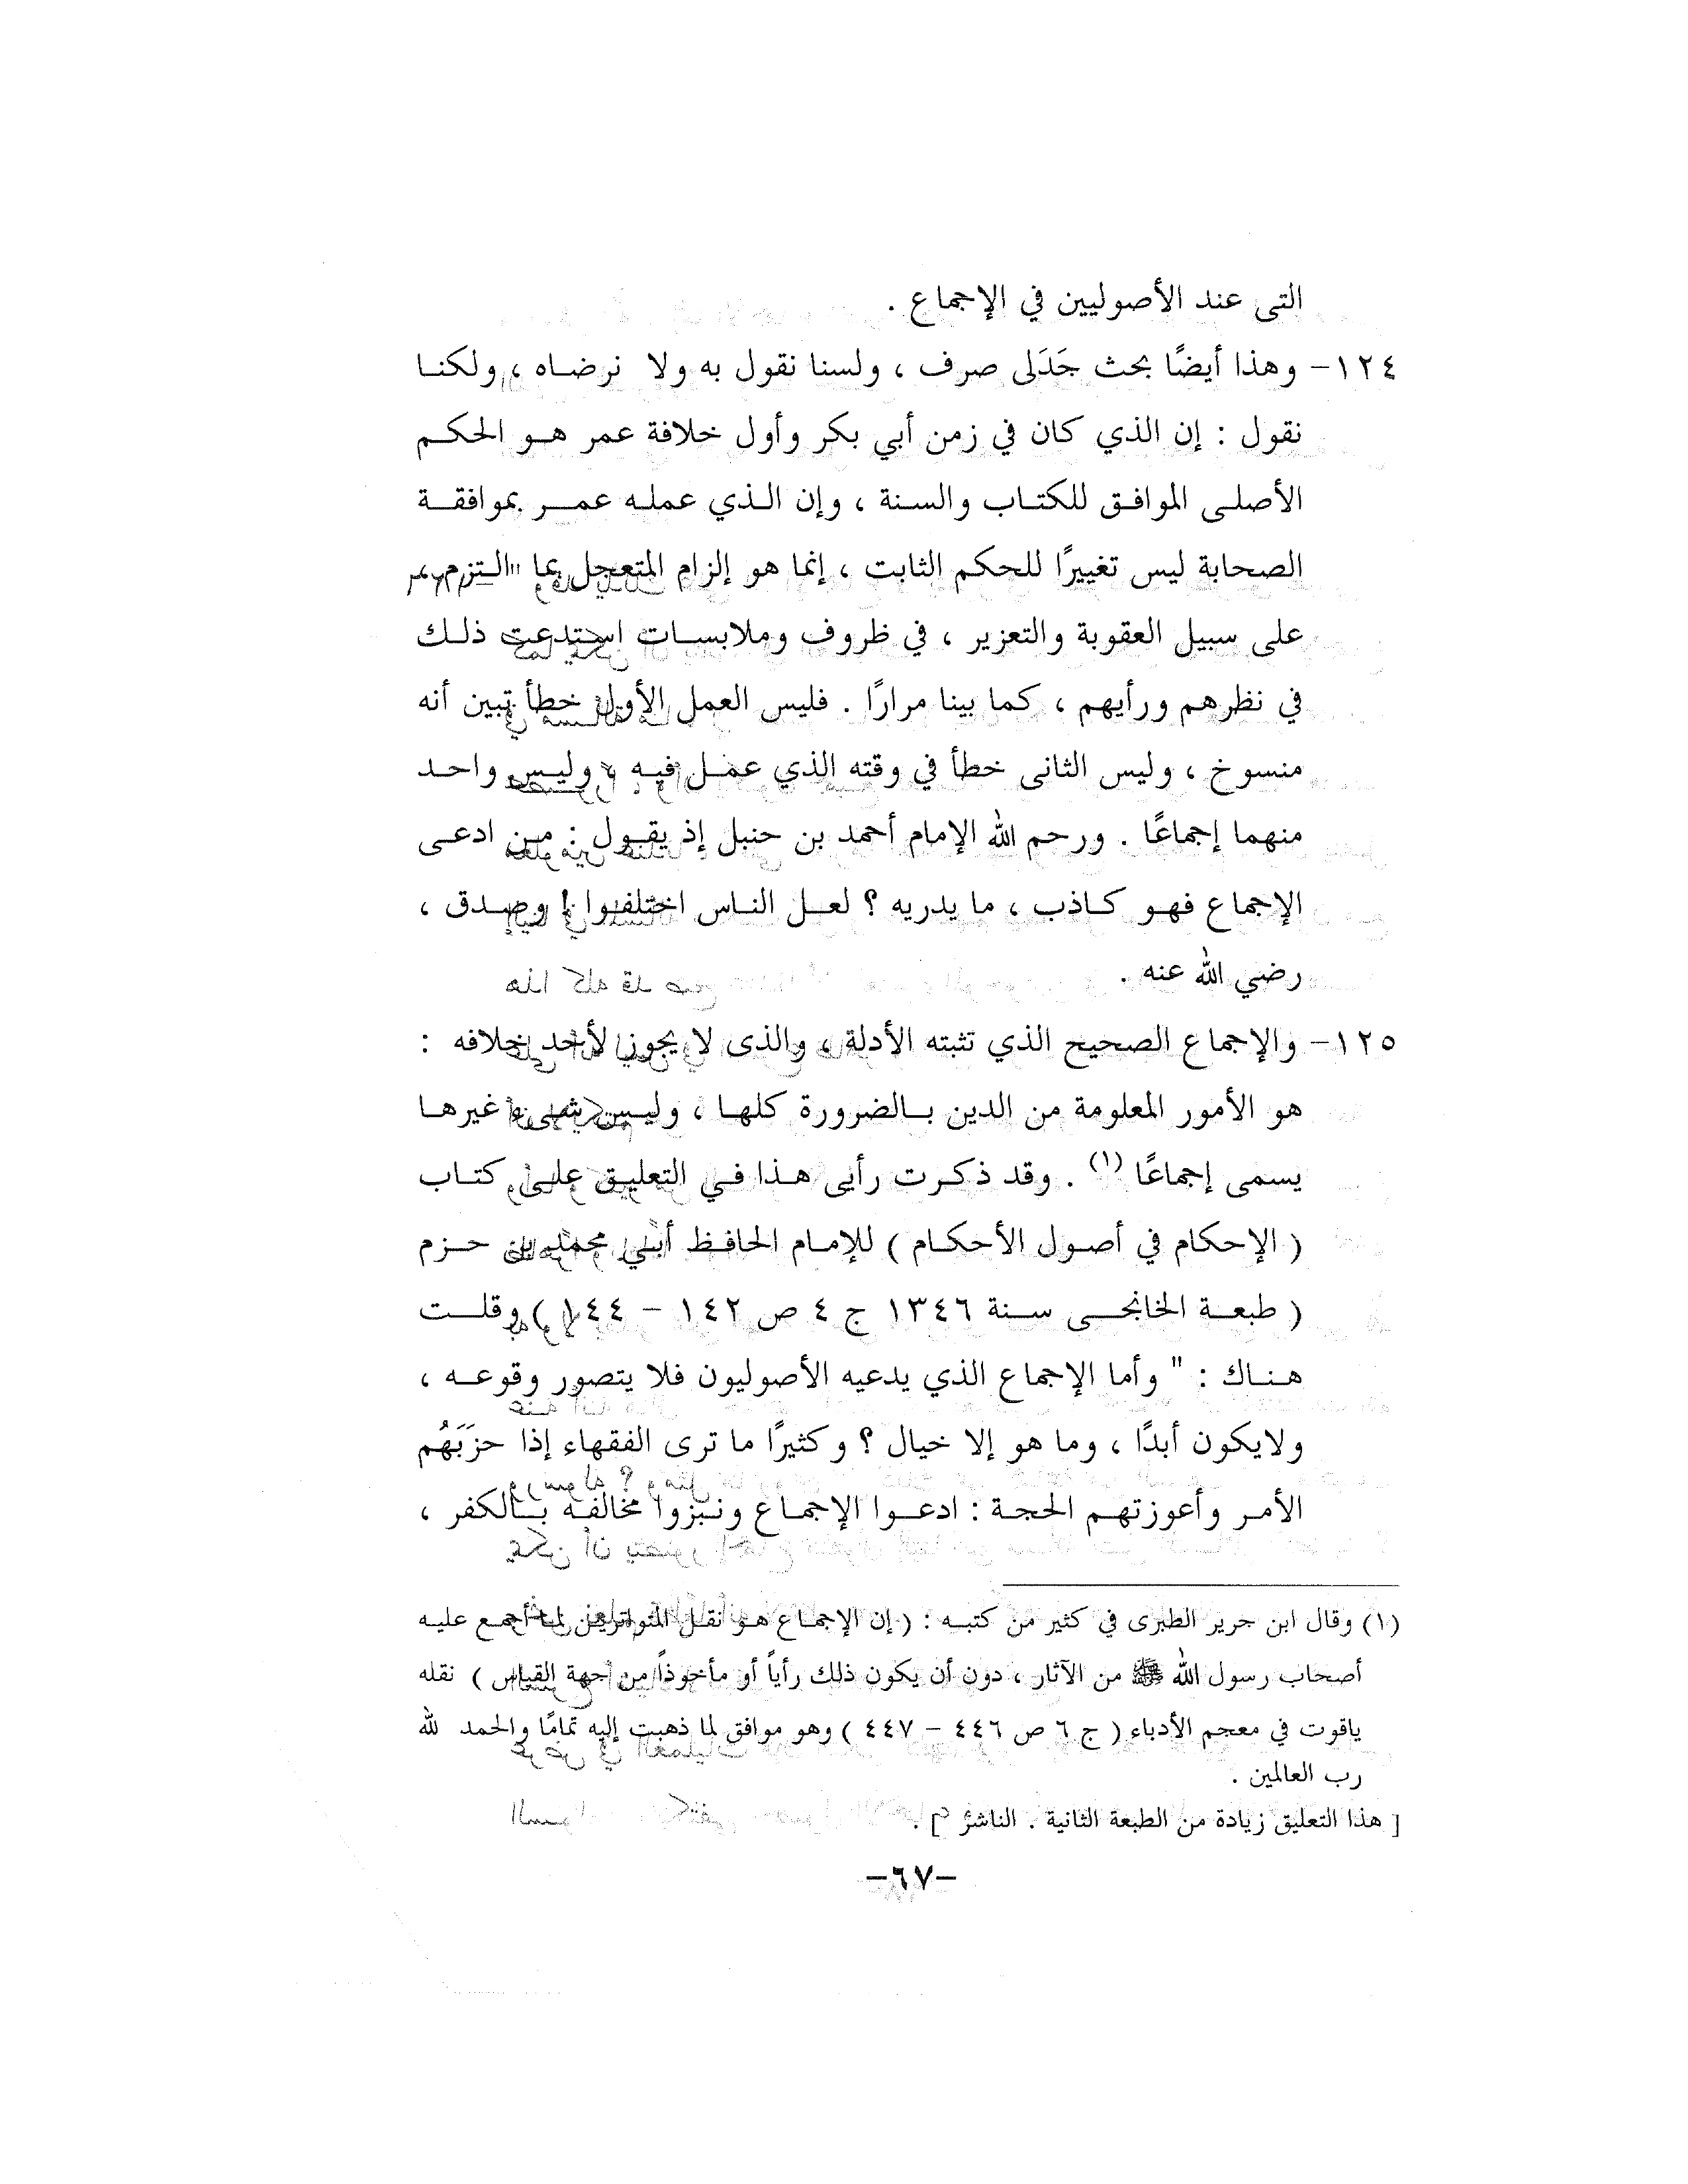 التى عند الأصوليين في الإجماع .
١٢٤- وهذا أيضًا بحث جَدَلى صرف ، ولسنا نقول به ولا نرضاه ، ولكنا
نقول : إن الذي كان في زمن أبي بكر وأول خلافة عمر هو الحكم
الأصلى الموافق للكتاب والسنة ، وإن الذي عمله عمر بموافقة
الصحابة ليس تغييرًا للحكم الثابت ، إنما هو إلزام المتعجل بما التزم
على سبيل العقوبة والتعزير ، في ظروف وملابسات استدعت ذلك
في نظرهم ورأيهم ، كما بينا مرارًا . فليس العمل الأول خطأ تبين أنه
منسوخ ، وليس الثانى خطأ في وقته الذي عمل فيه ، وليس واحد
منهما إجماعًا . ورحم الله الإمام أحمد بن حنبل إذ يقول : من ادعى
الإجماع فهو كاذب ، ما يدريه ؟ لعل الناس اختلفوا ! وصدق ،
رضي الله عنه .
١٢٥- والإجماع الصحيح الذي تثبته الأدلة ، والذى لا يجوز لأحد خلافه :
هو الأمور المعلومة من الدين بالضرورة كلها ، وليس شىء غيرها
يسمى إجماعًا (١) . وقد ذكرت رأيى هذا في التعليق على كتاب
( الإحكام في أصول الأحكام ) للإمام الحافظ أبي محمد بن حزم
( طبعة الخانجى سنة ١٣٤٦ ج ٤ ص ١٤٢ - ١٤٤ ) وقلت
هناك : " وأما الإجماع الذي يدعيه الأصوليون فلا يتصور وقوعه ،
ولايكون أبدًا ، وما هو إلا خيال ؟ وكثيرًا ما ترى الفقهاء إذا حزَبَهُم
الأمر وأعوزتهم الحجة : ادعوا الإجماع ونبزوا مخالفه بالكفر ،
(١) وقال ابن جرير الطبرى في كثير من كتبه : ( إن الإجماع هو نقل المتواترين لما أجمع عليه
أصحاب رسول الله ﷺ من الآثار ، دون أن يكون ذلك رأياً أو مأخوذاً من جهة القياس ) نقله
ياقوت في معجم الأدباء ( ج ٦ ص ٤٤٦ - ٤٤٧ ) وهو موافق لما ذهبت إليه تمامًا والحمد لله
رب العالمين .
[ هذا التعليق زيادة من الطبعة الثانية . الناشر ] .
-٦٧-